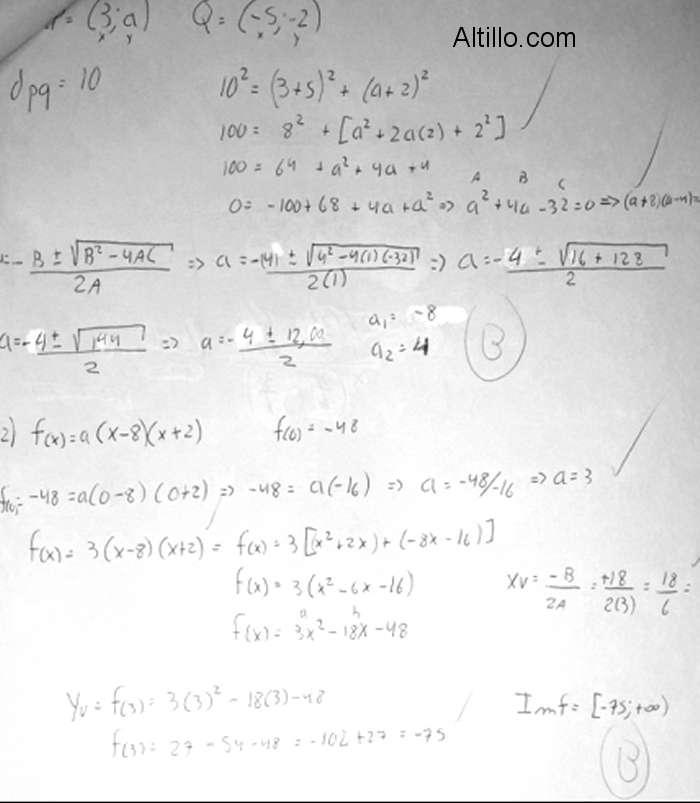 P = (3; a) Q = (-5; -2) Altillo.com
x y x y
dpq = 10 10² = (3+5)² + (a+2)²
100 = 8² + [a² + 2a(2) + 2²]
100 = 64 + a² + 4a + 4
A B C
0 = -100 + 68 + 4a + a² => a² + 4a - 32 = 0 => (a+8)(a-4)=
- B ± √B² - 4AC / 2A => a = -(4) ± √4² - 4(1)(-32) / 2(1) => a = - 4 ± √16 + 128 / 2
a = - 4 ± √144 / 2 => a = - 4 ± 12,00 / 2 a₁ = -8
a₂ = 4 B
2) f(x) = a (x-8)(x+2) f(0) = -48
f(0) = -48 = a(0-8) (0+2) => -48 = a(-16) => a = -48/-16 => a = 3
f(x) = 3 (x-8) (x+2) = f(x) = 3 [(x² + 2x) + (-8x - 16)]
f(x) = 3 (x² - 6x - 16) XV = -B / 2A = +18 / 2(3) = 18 / 6 =
a b
f(x) = 3x² - 18x - 48
Yv = f(3) = 3(3)² - 18(3) - 48 Imf = [-75; +∞)
f(3) = 27 - 54 - 48 = -102 + 27 = -75
B